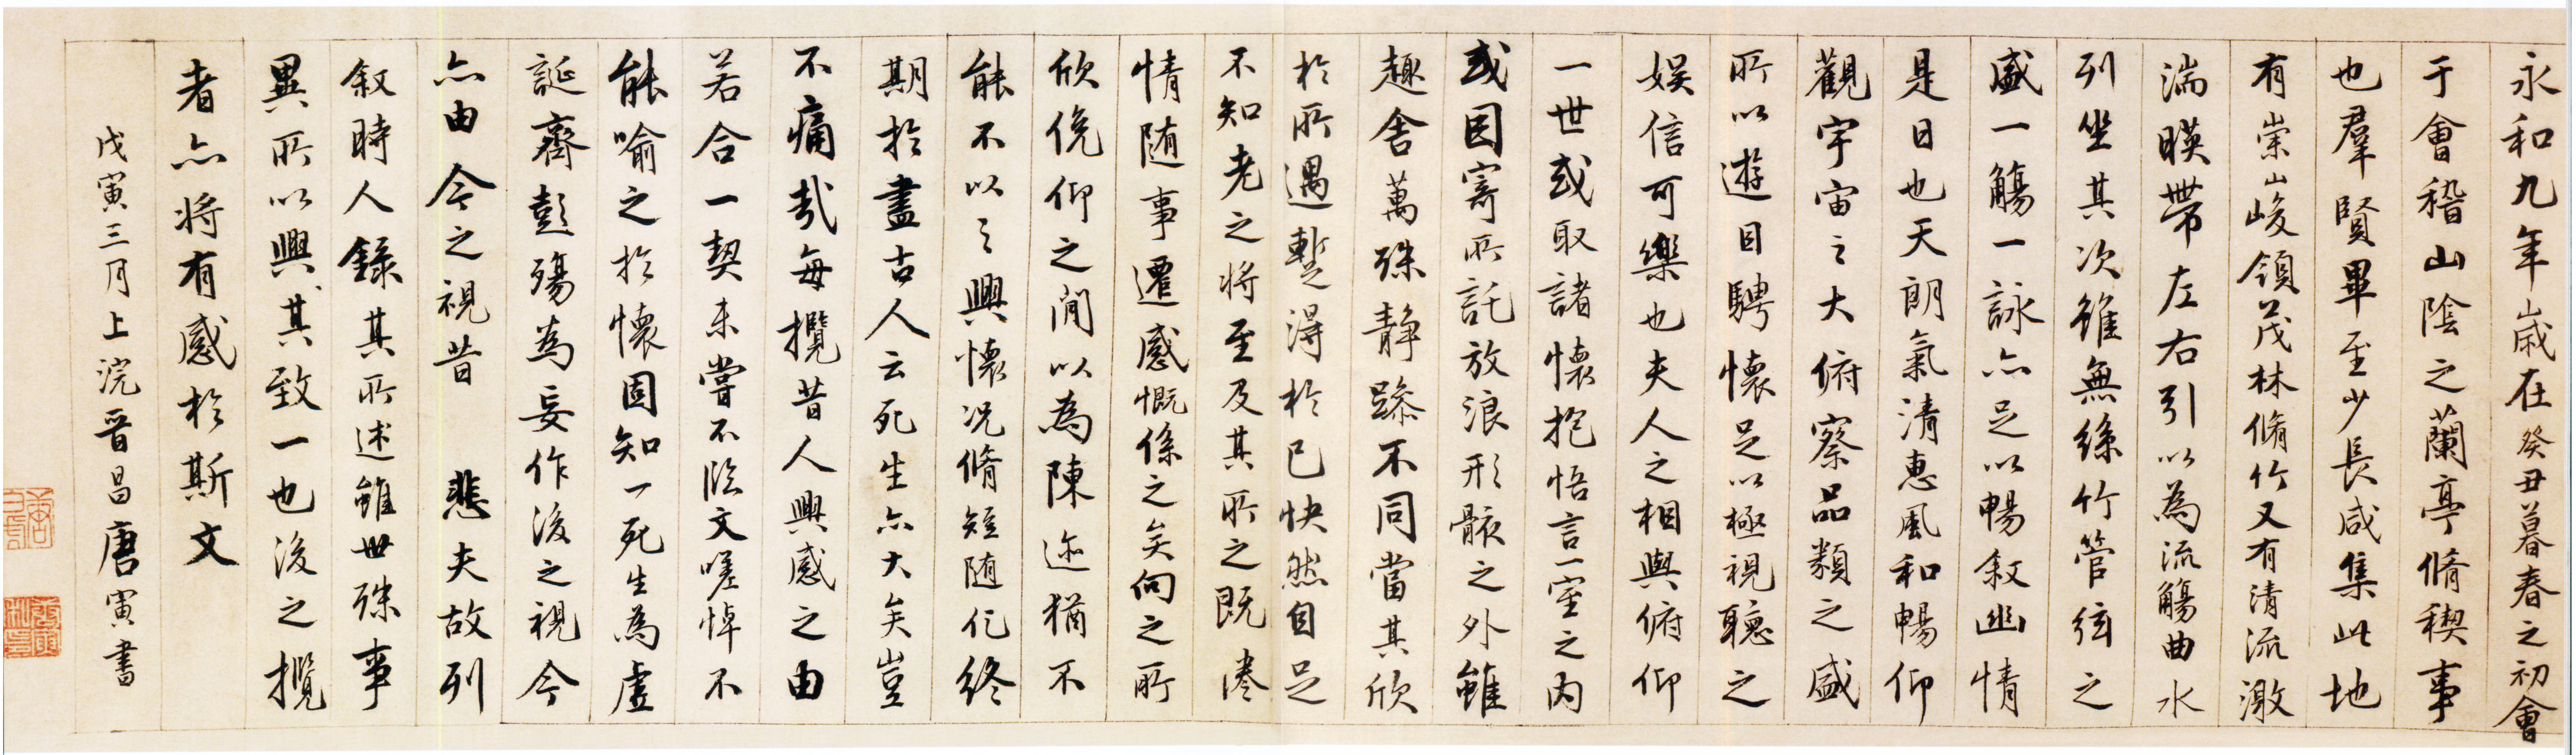 永和九年歲在癸丑暮春之初會
于會稽山陰之蘭亭脩稧事
也羣賢畢至少長咸集此地
有崇山峻領茂林脩竹又有清流激
湍暎帶左右引以為流觴曲水
列坐其次雖無絲竹管弦之
盛一觴一詠亦足以暢敘幽情
是日也天朗氣清惠風和暢仰
觀宇宙之大俯察品類之盛
所以遊目騁懷足以極視聽之
娛信可樂也夫人之相與俯仰
一世或取諸懷抱悟言一室之內
或因寄所託放浪形骸之外雖
趣舍萬殊静躁不同當其欣
於所遇蹔得於己快然自足
不知老之将至及其所之既惓
情随事遷感慨係之矣向之所
欣俛仰之間以為陳迹猶不
能不以之興懷况脩短随化終
期於盡古人云死生亦大矣豈
不痛哉每攬昔人興感之由
若合一契未嘗不臨文嗟悼不
能喻之於懷固知一死生為虛
誕齊彭殤為妄作後之視今
亦由今之視昔 悲夫故列
敘時人錄其所述雖世殊事
異所以興其致一也後之攬
者亦将有感於斯文
戊寅三月上浣晉昌唐寅書